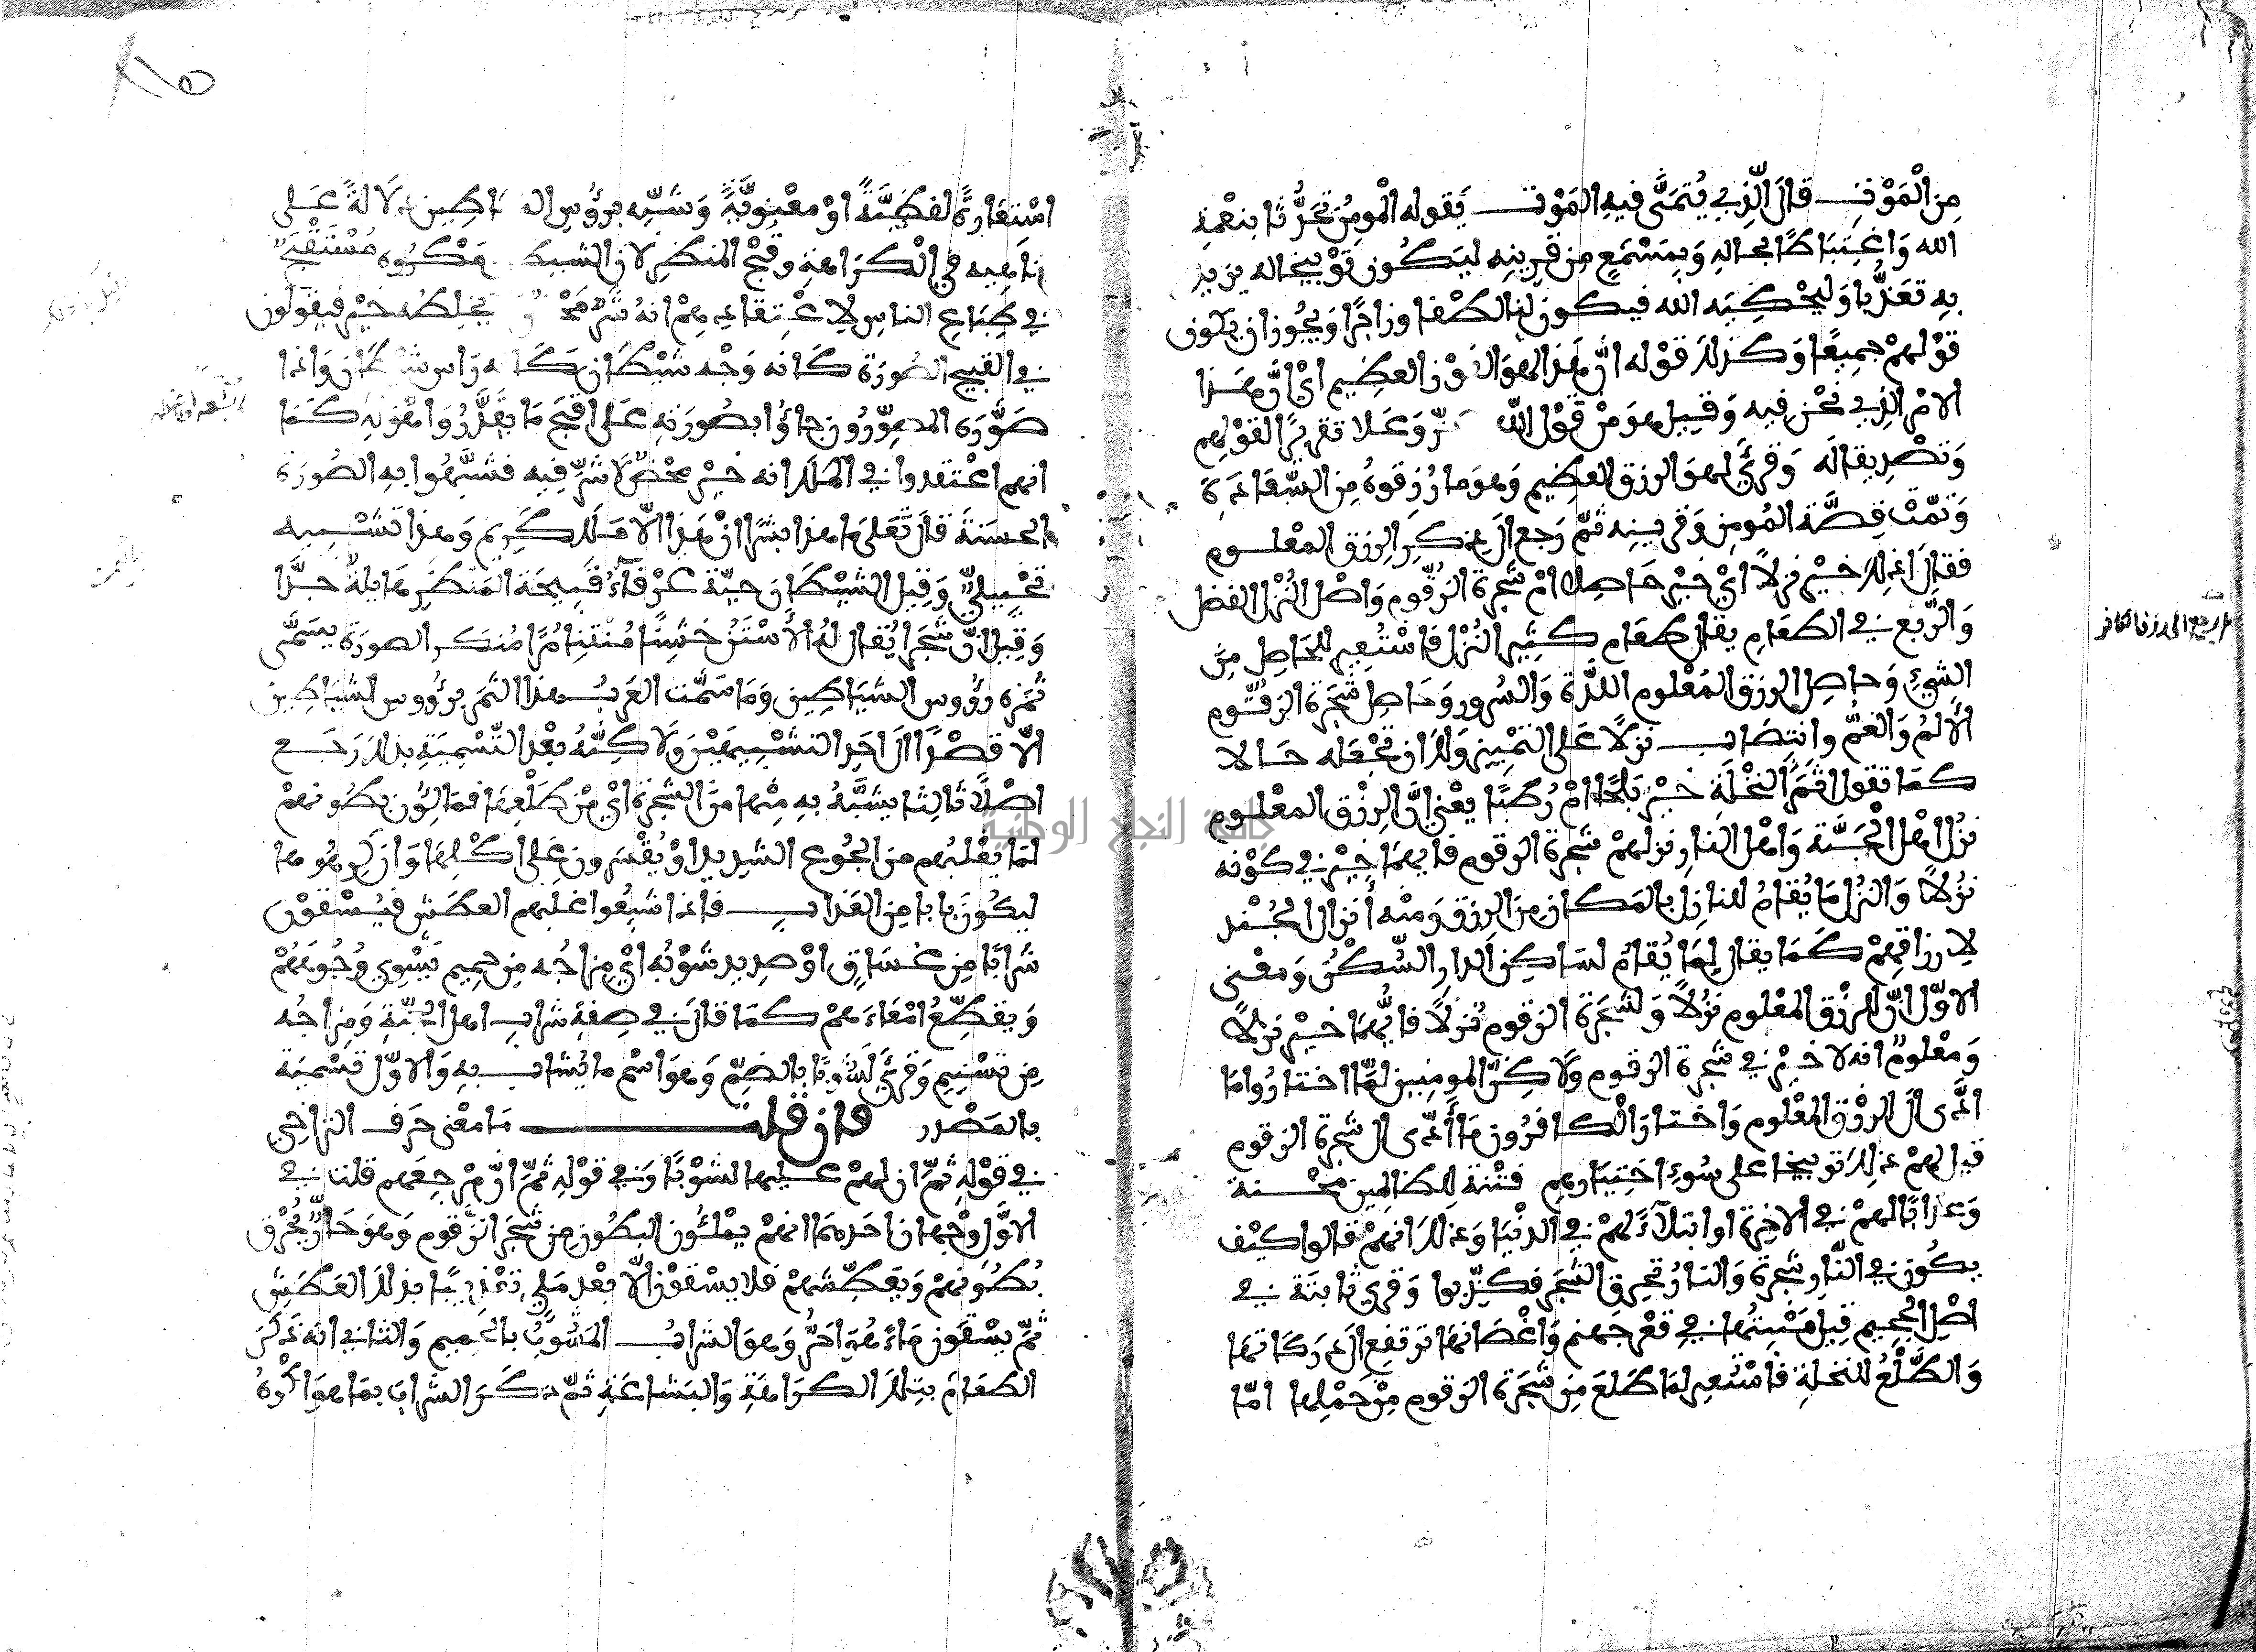 مِنَ الْمَوْتِ قالَ الَّذِي يُتَمَنَّى فيهِ المَوْت يَقوله المُومِنُ تَحَدُّثًا بنعْمةِ
الله وَاغْتِبَاطًا بحاله وَبِمَسْمَعٍ مِن قرِينِه ليَكُون تَوْبيخا له يزيد
بِهِ تعَذُّبا وَليَحْكِيَه الله فيكون لنا لطْفا وزاجرًا وَيَجُوز ان يكون
قوْلهمْ جميعًا وَكذلك قوْله انَّ هَذا لهوَ الفَوْز العظِيم ايْ انَّ هذا
الامْر الذِي نحْن فيه وَقيل هوَ مِنْ قَوْل اللّه عزّ وَعَلا تقريرًا لقوْلهم
وَتصْديقا لَه وَقرِيَ لهوَ الرزق العظِيم وَهوَ ما رُزِقوهُ مِن السَّعَادَة
وَتمّتْ قِصَّة المُومِن وَقرينِه ثمّ رَجع الَى ذكر الرزق المعْلوم
فقال اذلك خيْر نزلاً ايْ خيْر حَاصِلا امْ شجرة الزقّوم وَاصْل النُّزل الفضل
وَالرَّيع في الطعَامِ يقال طعَام كثير النُزْل فاسْتُعِير للحَاصِل مِن
الشيْءِ وَحاصِل الرزق المَعْلوم اللذَّة وَالسُرور وَحَاصِل شجَرة الزقّوم
الألَمُ وَالغَمُّ وانتِصَاب نزلاً عَلى التمْييز وَلكَ ان تجْعَله حَالا
كمَا تقول اثمَر النخْلَة خيْر بَلَحًا امْ رُطبًا يعْني انَّ الرزْق المعْلوم
نزُل اهْل الجَنَّة وَاهْل النار نزلهمْ شجَرة الزقوم فايهمَا خيْر في كوْنه
نزُلاً وَالنزُل مَا يُقامُ للنازِل بالمَكان مِن الرزق وَمنْه أنزال الجُنْد
لارزاقهمْ كَمَا يقال لِمَا يُقامُ لسَاكِن الدار السُّكْن وَمعْنى
الاوّل انّ للرزْق المعْلوم نزُلاً وَلشجَرة الزقوم نُزلاً فايُّهمَا خيْر نزلاً
وَمعْلومٌ انه لا خيْر في شجَرة الزقوم وَلاكنّ المومِنين لمّا اختارُوا مَا
ادَّى الَى الرزْق المعْلوم وَاختارَ الْكافرُون مَا أدّى الى شجرة الزقوم
قيل لهمْ ذلك توبيخا على سُوءِ اختِيَارهم فتْنة لِلظالِمِين محْنة
وَعذابًا لهمْ في الاخِرة او ابتلاَءً لهمْ في الدنْيَا وَذلك انهمْ قالوا كيْف
يكُون في النَّارِ شجَرة وَالنارُ تحرِق الشجَر فكذّبوا وَقري ثابتة في
اصْل الجحِيم قيل مَنْبِتُها في قعْر جَهنم وَاغْصَانهَا ترتفع الَى دَرَكاتهَا
وَالطَّلْعُ للنخلةِ فاسْتُعير لمَا طلَعَ مِن شجَرة الزقوم مِنْ حَمْلِها امّا
اسْتعَارةً لفظِيَّةً اوْ معْنوِيَّةً وَشبّه برُؤُوسِ ال اطِين دَلاَلةً عَلى
تنَاهِيه في الْكرَاهةِ وقُبْح المنظرِ لان الشيط مكْرُوه مُسْتقْبَحٌ
في طِبَاعِ الناسِ لاِعْتِقادِهِمْ انهُ شَرٌّ محْ يخلِطُه خيْر فيقولون
في القبيح الصُورَة كَانه وَجْه شَيْطان كَا ه رَاس شيْطان وَاذا
صَوَّرَه المصوِّرُون جاؤُا بصُورَتهِ عَلى اقبَح مَا يقدَّرُ وَاهْوَلهِ كمَا
انهم اعْتقدوا في المَلك انه خيْر محْضٌ لاَ شَرَّ فيه فشبَّهُوا بهِ الصُورَة
الحسَنَة قال تَعَلى مَا هذا بشَرًا انْ هَذا الاّ مَلَك كَرِيم وَهذا تشبِيه
تخْييلِيٌّ وَقيل الشيْطان حيّة عَرْفاءُ قبِيحَة المَنظر هَايِلةٌ جدًّا
وَقِيل انّ شجَرا يُقال لهُ الأَسْتَنُ خَشِنًا مُنْتِنا مُرًّا مُنكر الصورَة يسَمَّى
ثمَرُه رؤُوس الشيَاطِين وَمَا سَمّت العَربُ هذا الثمَر برُؤُوسِ الشيَاطِين
الاّ قصْدًا الَى احَدِ التشْبِيهَيْن وَلاكِنّهُ بعْد التّسْمِيَةِ بذلك رَجَع
اصْلاً ثالِثا يشبَّهُ بهِ مِنْها مِنَ الشجَرة ايْ مِنْ طلْعِهَا فمَالِئُون بطُونهمْ
لمَا يغْلبُهم مِن الجُوع الشدِيد اوْ يُقْسَرون عَلى اكْلِهَا وَان كرِهُوها
ليكُون بابا مِن العَذاب فاذا شبِعُوا غلبَهم العطَش فيُسْقوْن
شَرابًا مِن غسَاقٍ اوْ صدِيد شَوْبُه ايْ مِزاجُه مِن حمِيم يَشْوِي وُجُوهَهُمْ
وَيقطِّعُ امْعَاءَهمْ كمَا قالَ في صِفةِ شرَابِ اهل الجَنَّةِ وَمِزاجُه
مِن تسْنِيمٍ وَقرِيَ لَشُوبًا بالضمّ وَهوَ اسْم ما يُشَاب بهِ وَالاوّل تسْمِيَة
بالمَصْدر فان قلت مَا معْنى حَرف التراخِي
في قوْلهِ ثمّ ان لهمْ عليها لشوْبًا وَفي قوْلِهِ ثمَّ انَّ مرْجِعَهم قلنا في
الاوّل وَجْهان احَدهمَا انهمْ يمْلَئُون البطُون مِن شجَر الزّقوم وَهوَ حَارٌّ يُحْرق
بُطُونهمْ وَيعَطِّشهمْ فلا يسْقوْن الاّ بعْد مَلِيٍّ تعْذيبًا بذلك العَطشِ
ثمّ يسْقون مَا هُوَ احَرُّ وَهوَ الشرابُ المشُوبُ بالحَمِيم وَالثاني انه ذكَرَ
الطعَامَ بتِلك الكرَاهةِ وَالبشَاعَةِ ثمّ ذكَر الشرابَ بمَا هوَ اكْرهُ
جامعة النجاح الوطنية